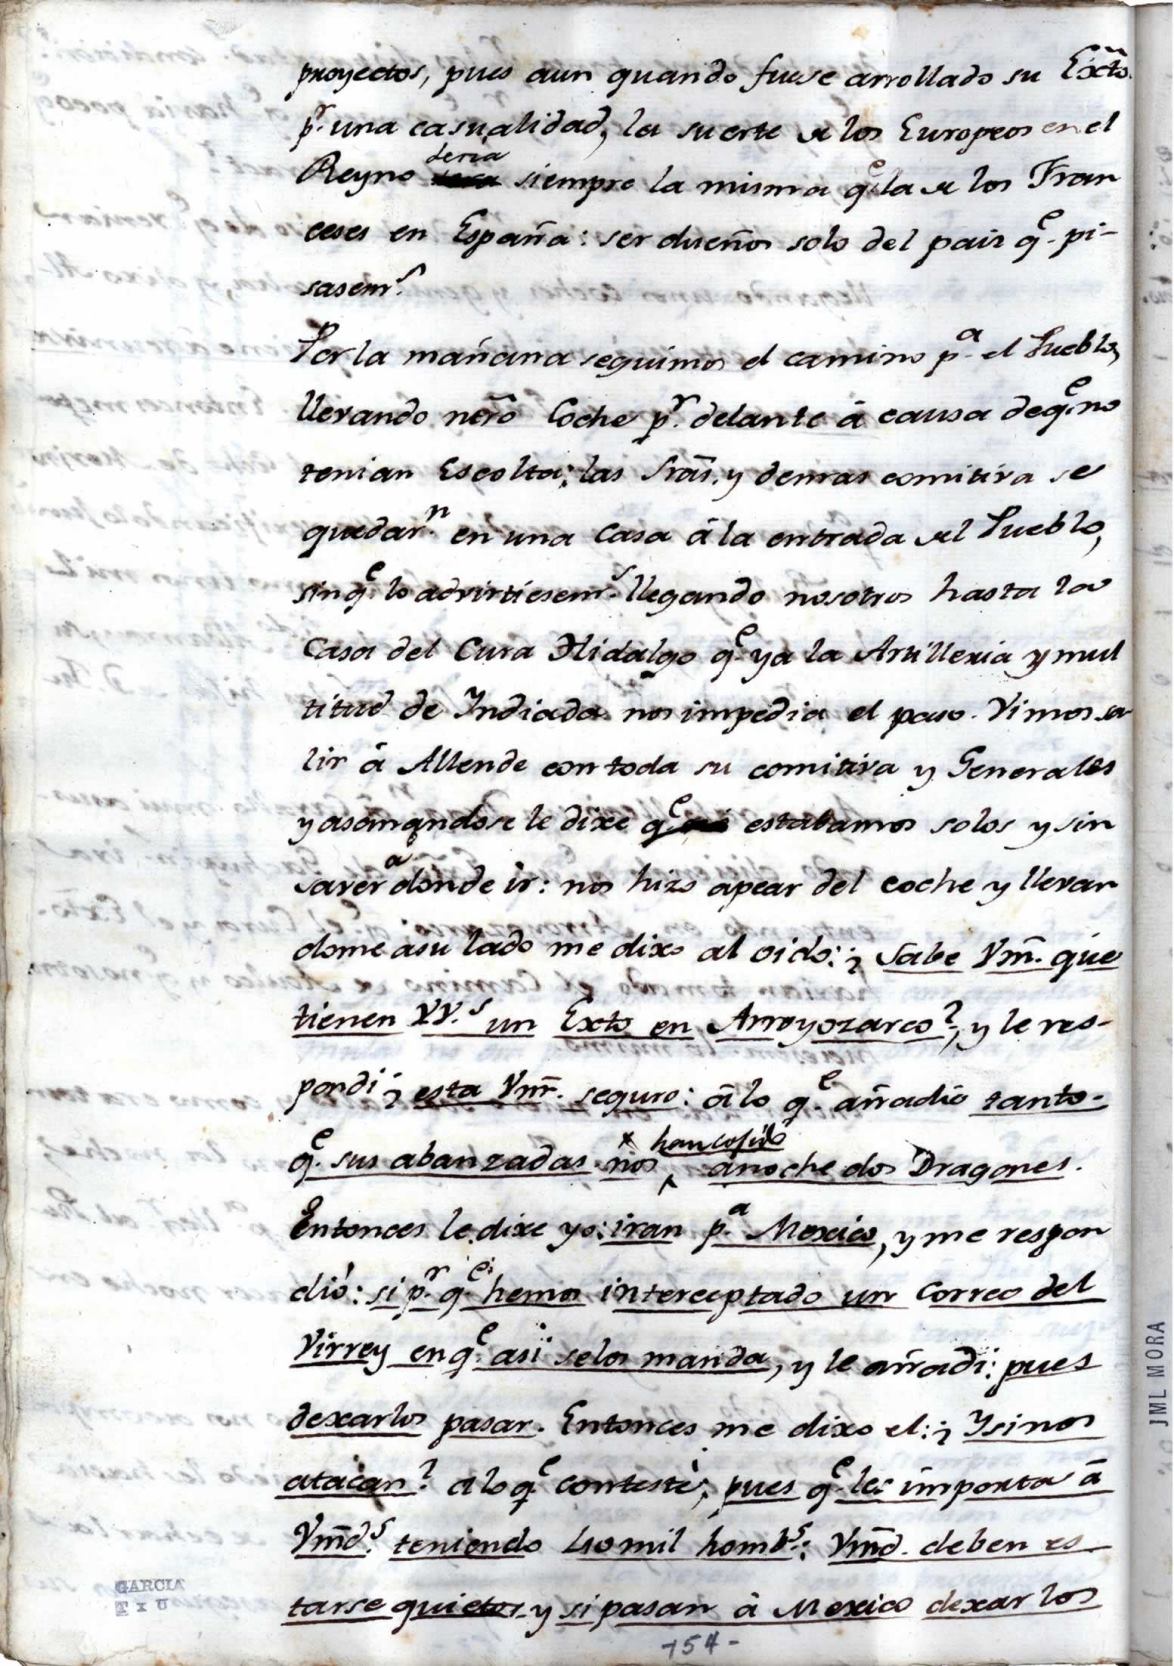 proyectos, pues aun quando fuese arrollado su Exto.
pr. una casualidad, la suerte de los Europeos en el
Reyno seria siempre la misma qe. la de los Fran
ceses en España: ser dueños solo del pais qe. pi-
sasen.
Por la mañana seguimos el camino pa. el Pueblo,
llevando nro Coche pr. delante á causa de qe. no
tenian Escolta; las Sras. y demas comitiva se
quedarn. en una Casa á la entrada del Pueblo,
sin qe. lo advirtiesems. llegando nosotros hasta la
Casa del Cura Hidalgo qe. ya la Artilleria y mul
titud de Indiada nos impedia el paso. Vimos sa
lir á Allende con toda su comitiva y Generales
y asomandose le dixe qe. estabamos solos y sin
saver a donde ir: nos hizo apear del coche y llevan
dome a su lado me dixo al oido: ¿ Sabe Vm. que
tienen VV.s un Exto en Arroyozarco?, y le res-
pondi ¿ esta Vm. seguro: á lo qe. añadió tanto-
qe. sus abanzadas nos han cogido anoche dos Dragones.
Entonces le dixe yo: iran pa. Mexico, y me respon
dió: si pr. qe. hemos interceptado un Correo del
Virrey en qe. asi se los manda, y le añadi: pues
dexarlos pasar. Entonces me dixo el: ¿ Y si nos
atacan? a lo qe. contesté; pues qe. les importa á
Vmds. teniendo 40 mil homb.s: Vmd. deben es
tarse quietos y si pasan á Mexico dexarlos
154-
GARCIA
JML MORA